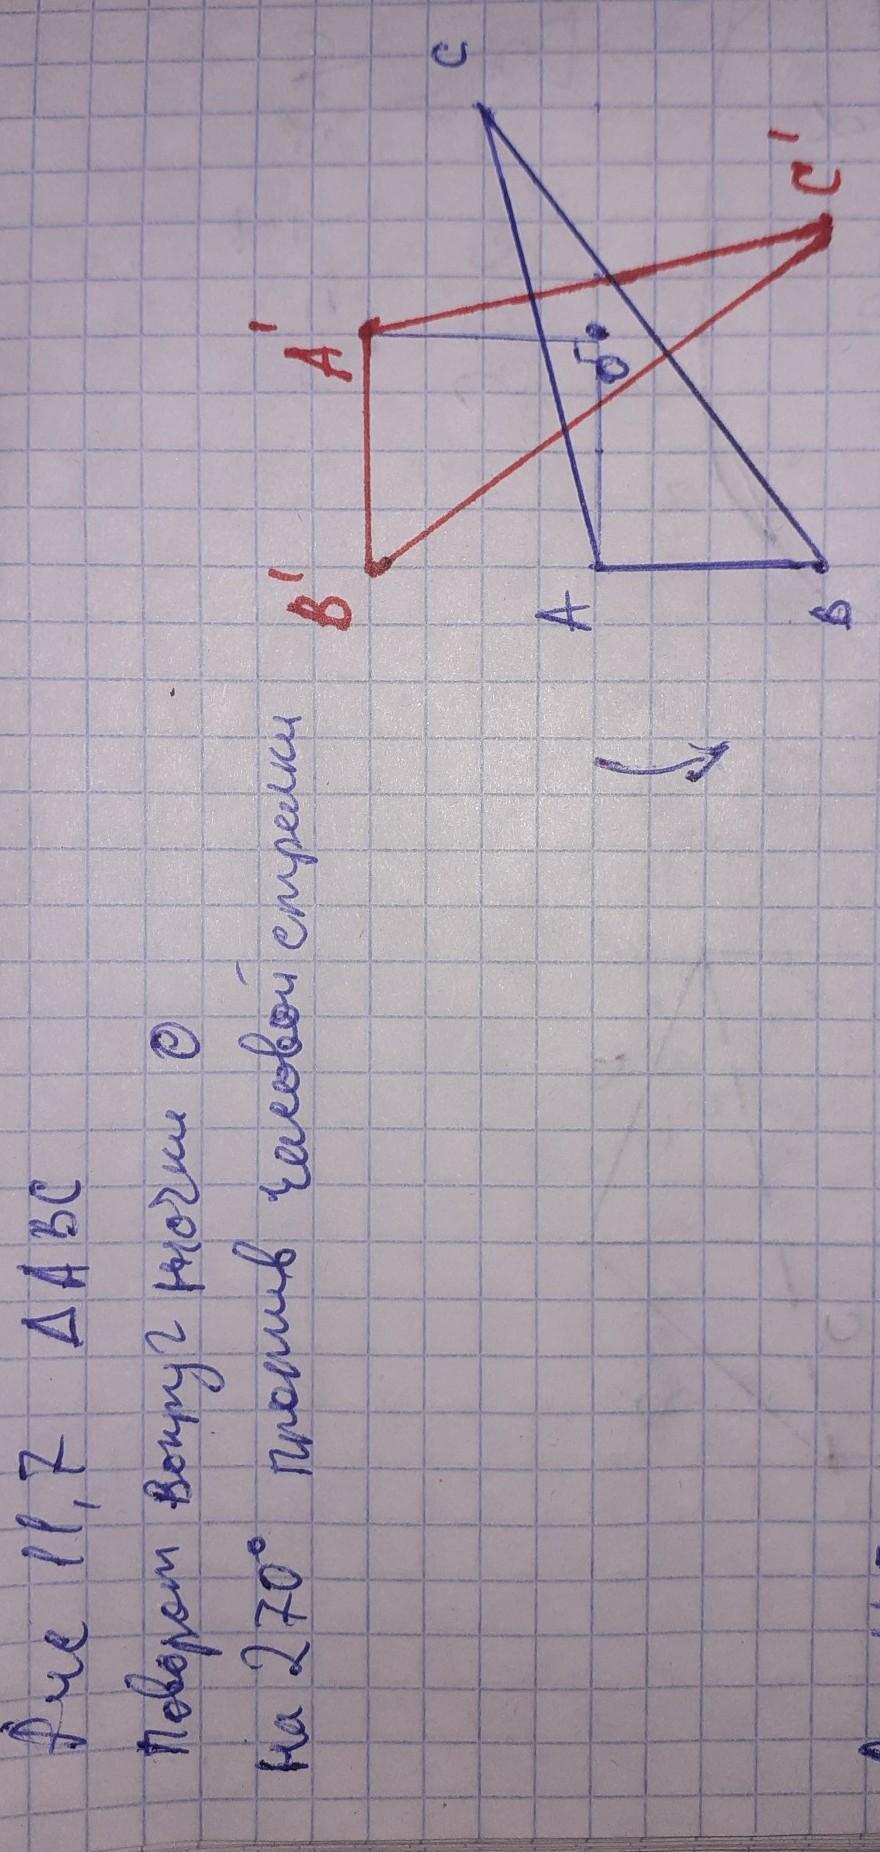 Рис 11,7 ΔABC
Поворот вокруг точки O
на 270° против часовой стрелки
B' A' C'
A O C
B